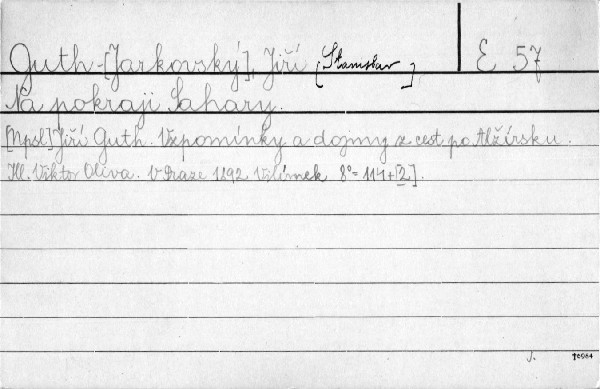 Guth-[Jarkovský], Jiří [Stanislav] E 57
Na pokraji Sahary.
[Npsl.] Jiří Guth. Vzpomínky a dojmy z cest po Alžírsku.
Ill. Viktor Oliva. V Praze 1892 Vilímek 8°= 114+[2].
J. †6984